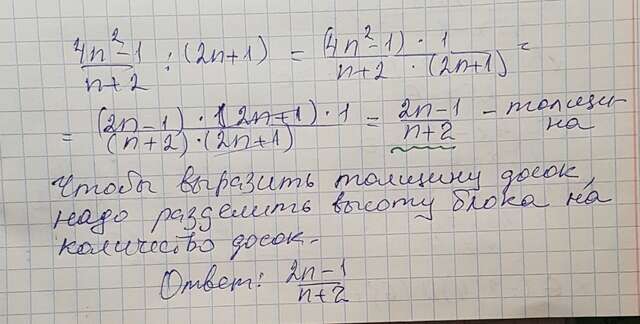 (4n²-1)/(n+2) : (2n+1) = ((4n²-1) · 1)/(n+2 · (2n+1)) =
= ((2n-1) · (2n+1) · 1)/((n+2) · (2n+1)) = (2n-1)/(n+2) - толщи-
на
Чтобы выразить толщину досок,
надо разделить высоту блока на
количество досок.
Ответ: (2n-1)/(n+2)